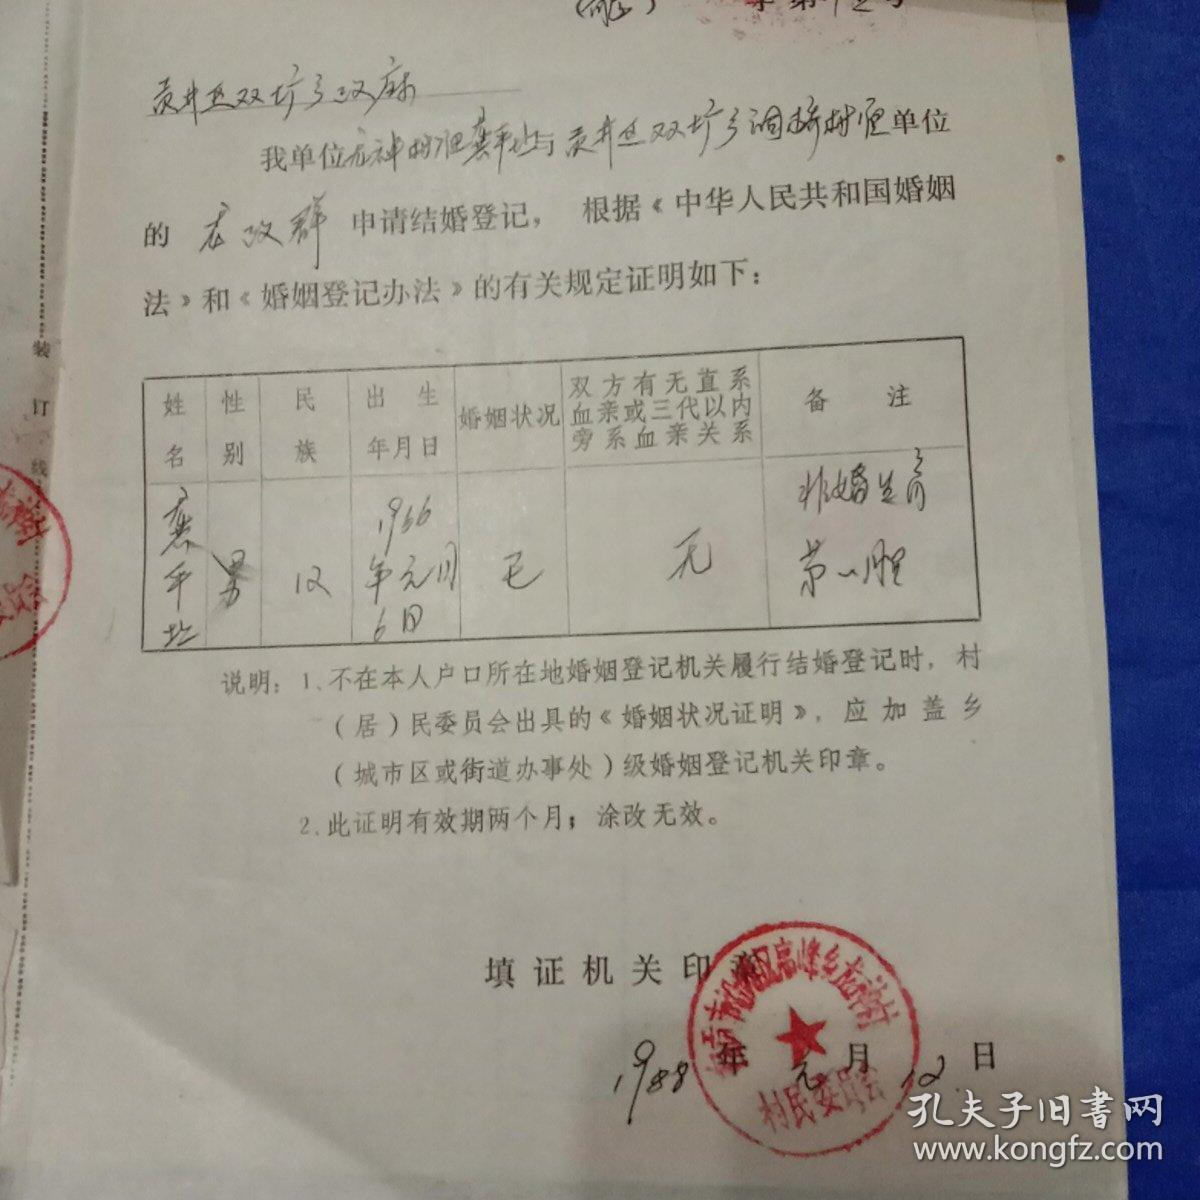 (证) 字第12号
贡井区双坊乡政府
我单位龙神村 与贡井区双坊乡 村 单位
的 申请结婚登记，根据《中华人民共和国婚姻
法》和《婚姻登记办法》的有关规定证明如下：
姓名 性别 民族 出生年月日 婚姻状况 双方有无直系血亲或三代以内旁系血亲关系 备注
男 汉 1966年元月6日 无 非婚生育第一胎
说明：1.不在本人户口所在地婚姻登记机关履行结婚登记时，村
（居）民委员会出具的《婚姻状况证明》，应加盖乡
（城市区或街道办事处）级婚姻登记机关印章。
2.此证明有效期两个月；涂改无效。
填证机关印章
1988年元月12日
村民委员会
装订线
孔夫子旧書网
www.kongfz.com